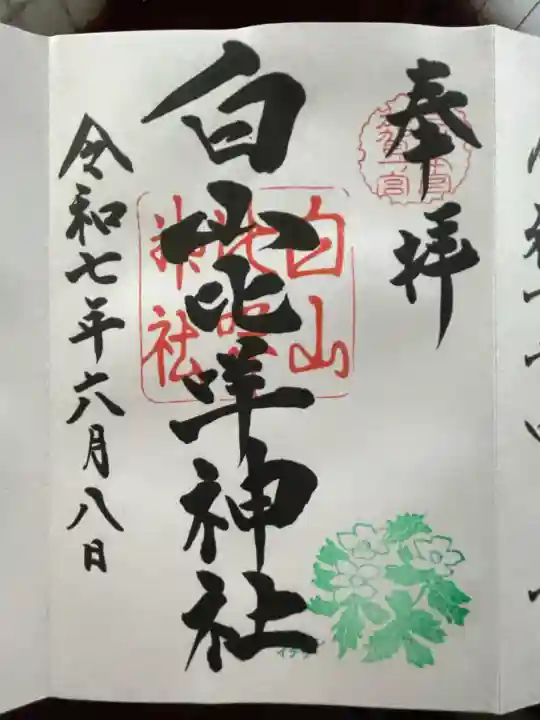 奉拝
白山比咩神社
白山比咩神社
令和七年六月八日